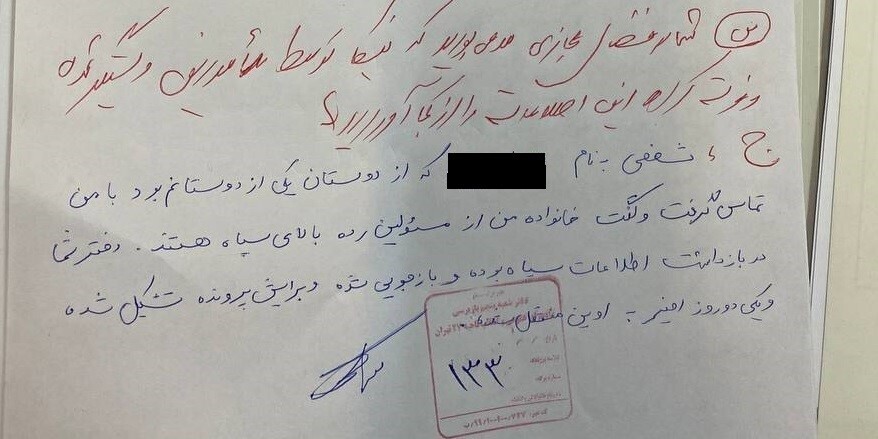 س) شما در فضای مجازی مدعی بودید که نیکا توسط مأمورین دستگیر شده
و فوت کرده این اطلاعات را از کجا آوردید؟
ج، شخصی به نام که از دوستان یکی از دوستانم بود با من
تماس گرفت و گفت خانواده من از مسئولین رده بالای سپاه هستند. دختر شما
در بازداشت اطلاعات سپاه بوده و بازجویی شده و برایش پرونده تشکیل شده
و یکی دو روز اخیر به اوین منتقل شده.
تهران
۱۳۳۰